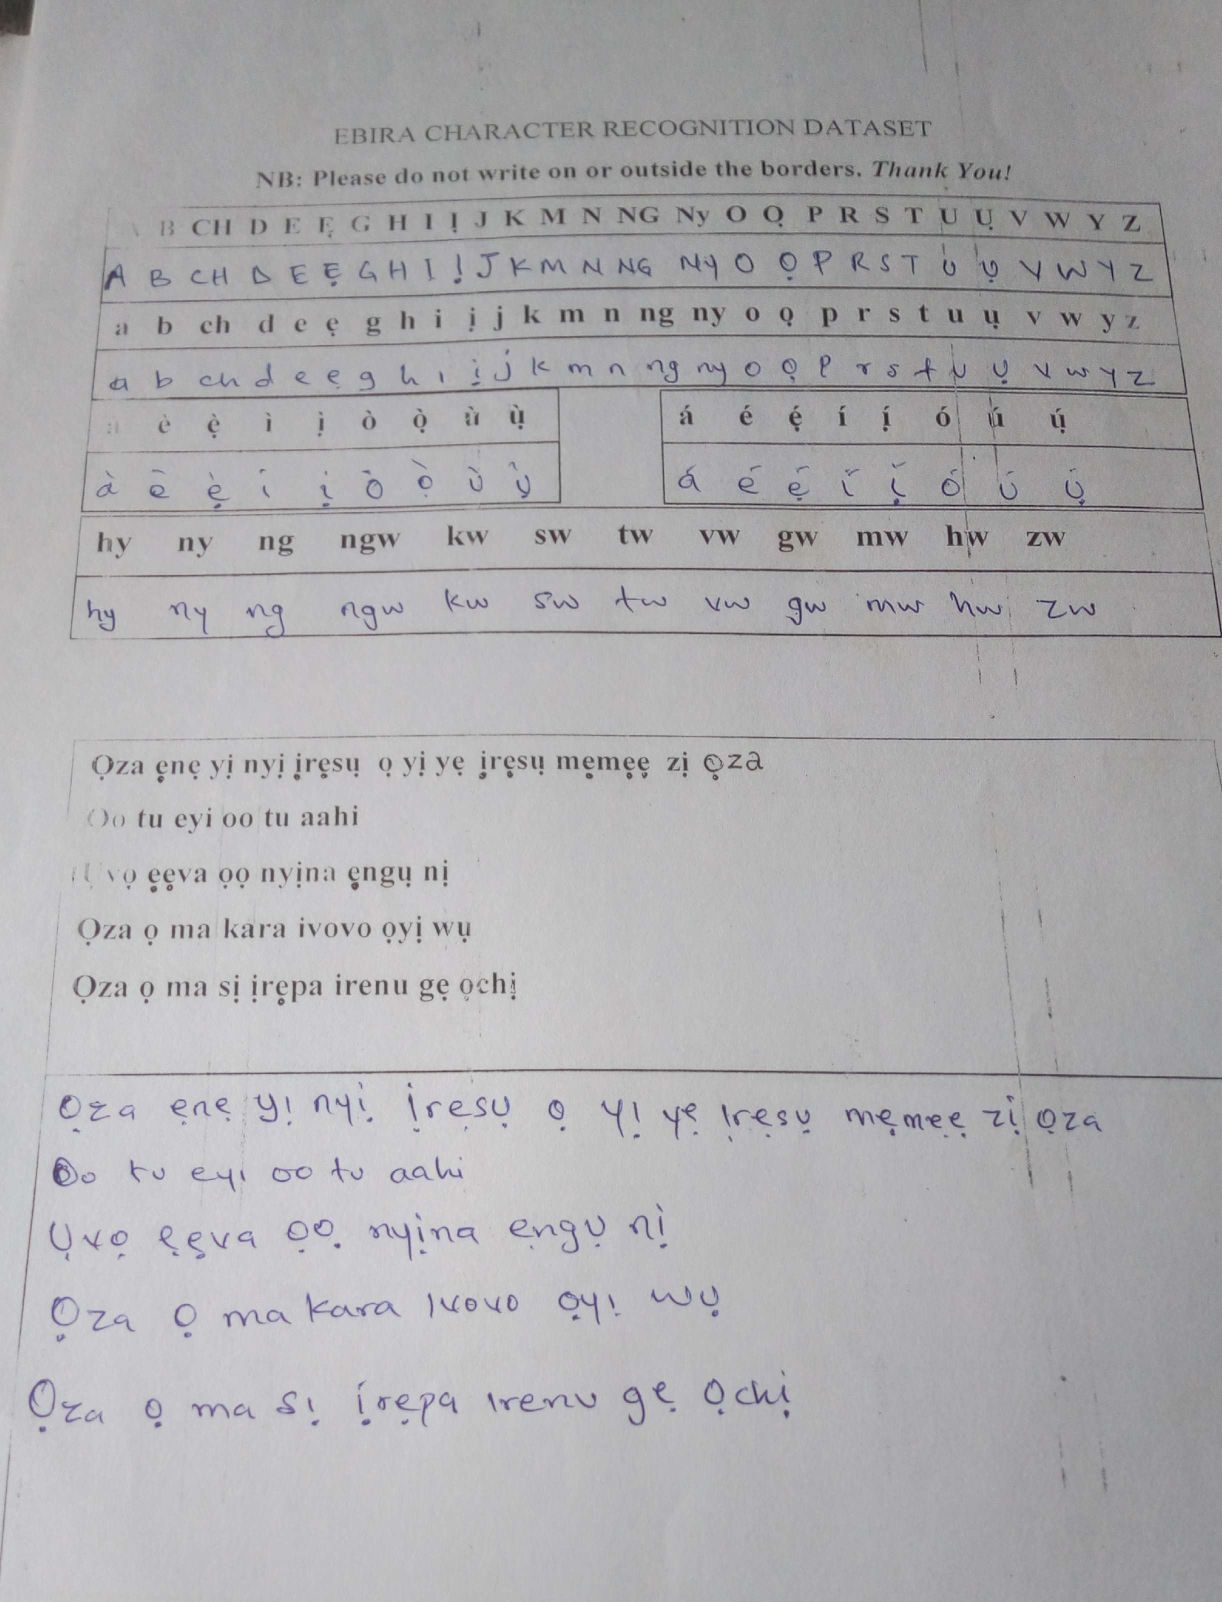 EBIRA CHARACTER RECOGNITION DATASET
NB: Please do not write on or outside the borders. Thank You!
A B CH D E Ẹ G H I Ị J K M N NG Ny O Ọ P R S T U Ụ V W Y Z
A B CH D E Ẹ G H I Ị J K M N NG Ny O Ọ P R S T U Ụ V W Y Z
a b ch d e ẹ g h i ị j k m n ng ny o ọ p r s t u ụ v w y z
a b ch d e ẹ g h i ị j k m n ng ny o ọ p r s t u ụ v w y z
a è ẹ̀ ì ị ò ọ̀ ù ụ̀ á é ẹ́ í ị́ ó ú ụ́
à è ẹ̀ ì ị̀ ò ọ̀ ù ụ̀ á é ẹ́ í ị́ ó ú ụ́
hy ny ng ngw kw sw tw vw gw mw hw zw
hy ny ng ngw kw sw tw vw gw mw hw zw
Ọza ẹnẹ yị nyị ịrẹsụ ọ yị yẹ ịrẹsụ mẹmẹẹ zị ọza
Oo tu eyi oo tu aahi
Ụvọ ẹẹva ọọ nyịna ẹngụ nị
Ọza ọ ma kara ivovo ọyị wụ
Ọza ọ ma sị ịrẹpa irenu gẹ ọchị
Ọza ẹnẹ yị nyị ịrẹsụ ọ yị yẹ ịrẹsụ mẹmẹẹ zị ọza
Oo tu eyi oo tu aahi
Ụvọ ẹẹva ọọ nyịna ẹngụ nị
Ọza ọ ma kara ivovo ọyị wụ
Ọza ọ ma sị ịrẹpa irenu gẹ ọchị